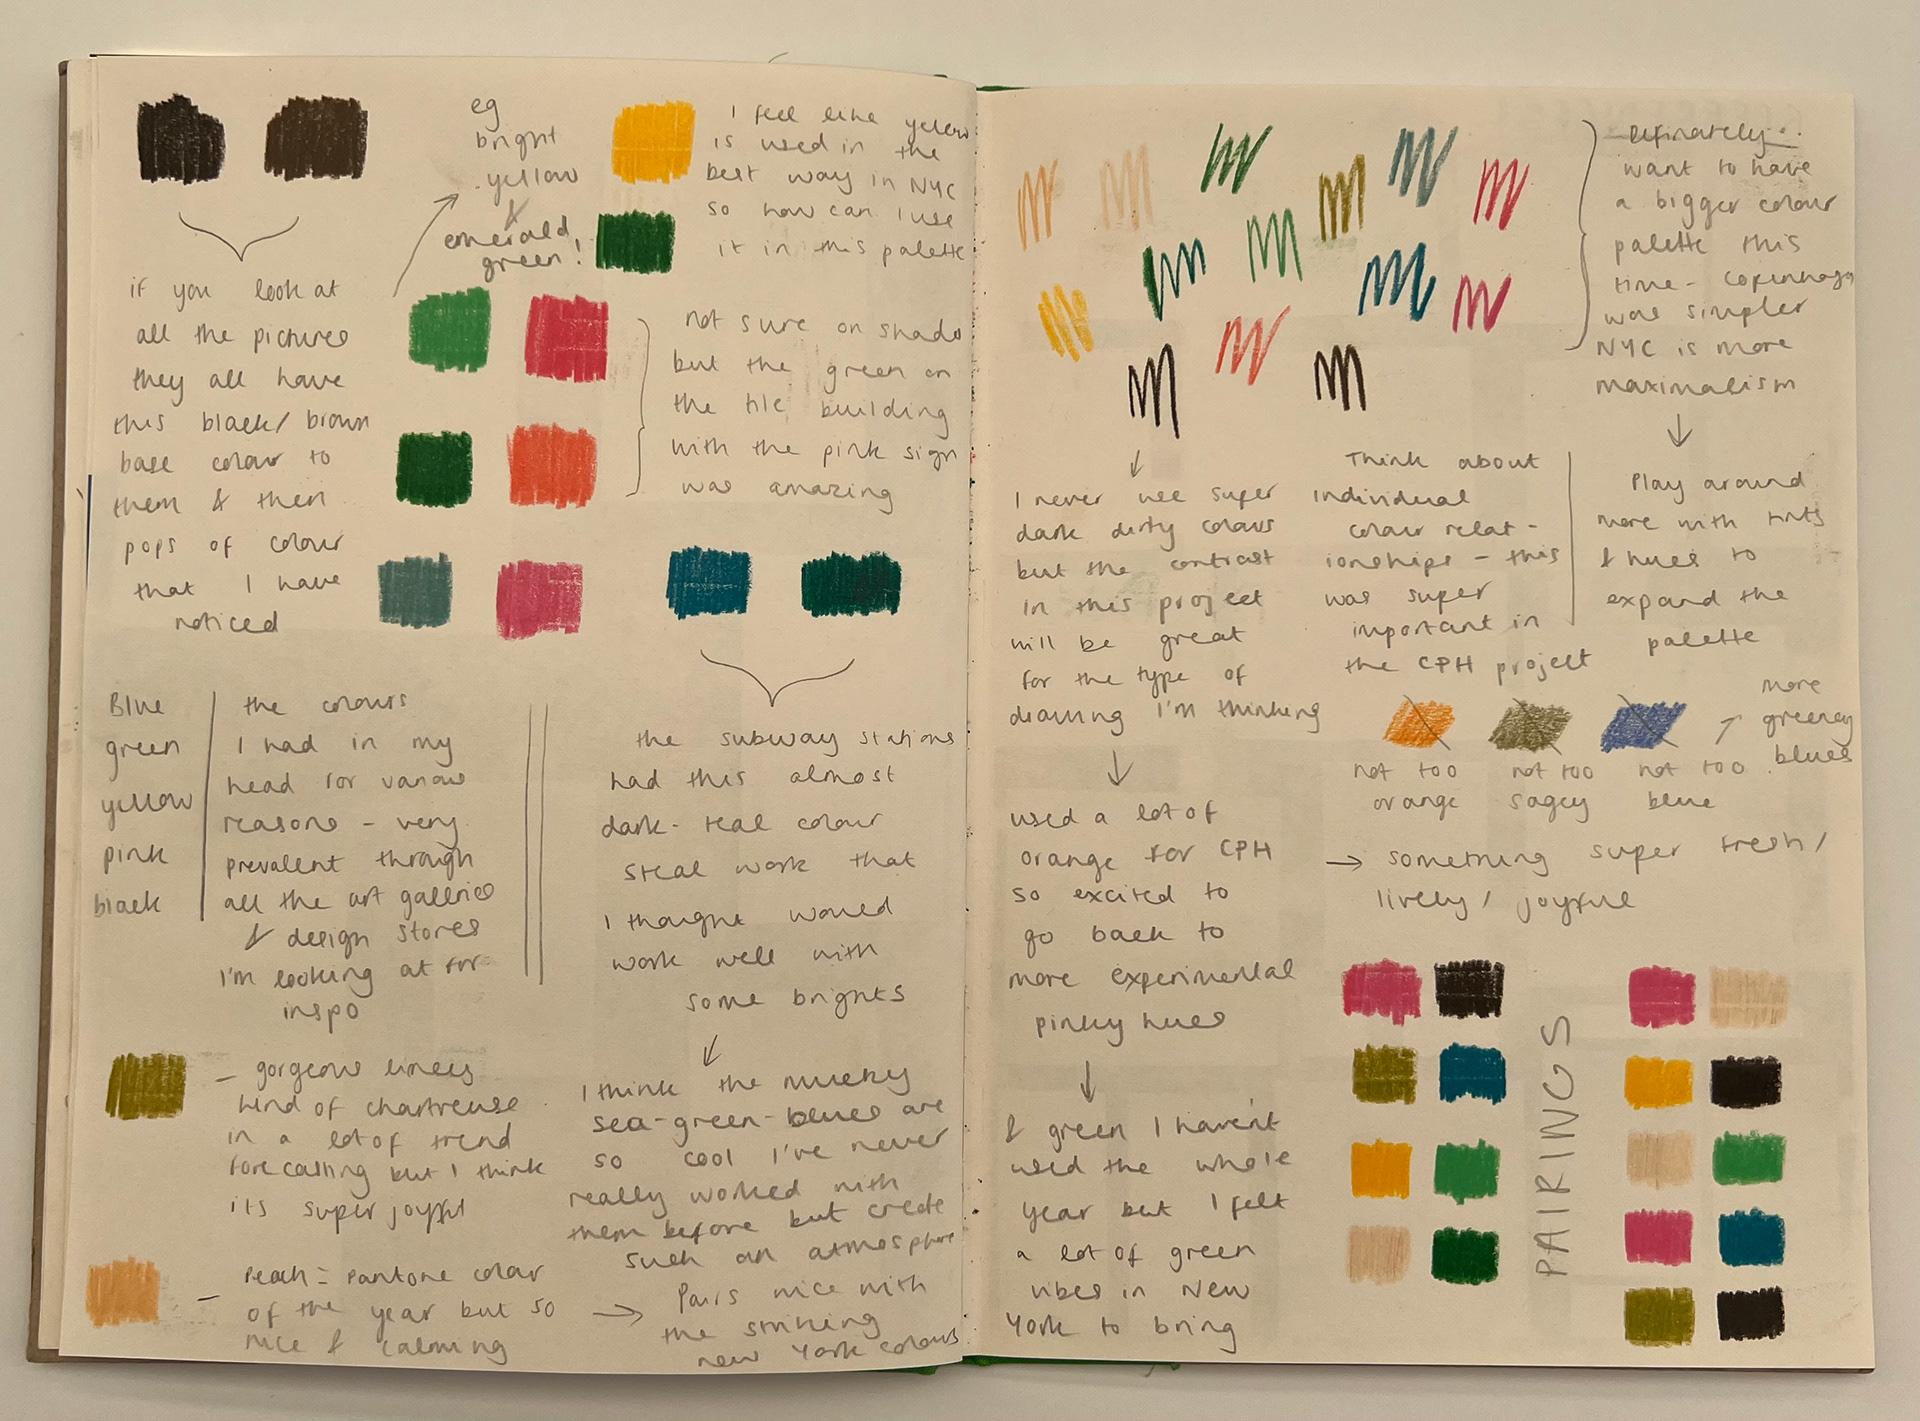 eg
bright
yellow
&
emerald
green!
I feel like yellow
is used in the
best way in NYC
so how can I use
it in this palette
if you look at
all the pictures
they all have
this black/brown
base colour to
them & then
pops of colour
that I have
noticed
not sure on shade
but the green on
the tile building
with the pink sign
was amazing
Blue
green
yellow
pink
black
the colours
I had in my
head for various
reasons - very
prevalent through
all the art galleries
& design stores
I'm looking at for
inspo
the subway stations
had this almost
dark-teal colour
steal work that
I thought would
work well with
some brights
I think the murky
sea-green-blues are
so cool I've never
really worked with
them before but create
such an atmosphere
- gorgeous limey
kind of chartreuse
in a lot of trend
forecasting but I think
its super joyful
- Peach = Pantone colour
of the year but so
nice & calming
→ Pairs nice with
the striking
new York colours
Definately..
want to have
a bigger colour
palette this
time - Copenhagen
was simpler
NYC is more
maximalism
Play around
more with tints
& hues to
expand the
palette
I never use super
dark dirty colours
but the contrast
in this project
will be great
for the type of
drawing I'm thinking
Think about
individual
colour relat-
ionships - this
was super
important in
the CPH project
used a lot of
orange for CPH
so excited to
go back to
more experimental
pinky hues
& green I haven't
used the whole
year but I felt
a lot of green
vibes in New
York to bring
not too
orange
not too
sagey
not too
blue
more
greeney
blues
→ something super fresh/
lively/joyful
PAIRINGS